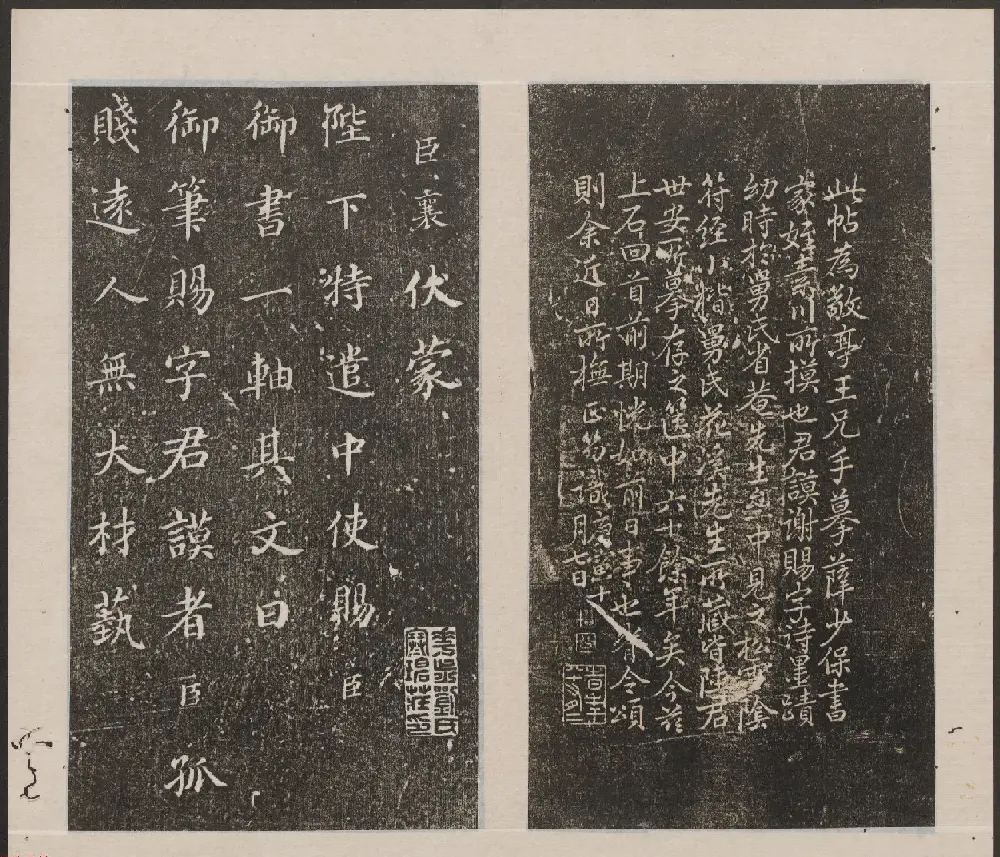 此帖為敬亭王兄手摹薛少保書
家姪素川所摸也君謨謝賜字詩墨蹟
幼時於舅氏省菴先生處中見之松雪陰
符經小楷舅氏花溪先生所藏皆陳君
世安所摹存之篋中六十餘年矣今茲
上石回首前期恍如前日事也有令頌
則余近日所撫正笏識 月七日
臣襄伏蒙
陛下特遣中使賜臣
御書一軸其文曰
御筆賜字君謨者臣孤
賤遠人無大材藝